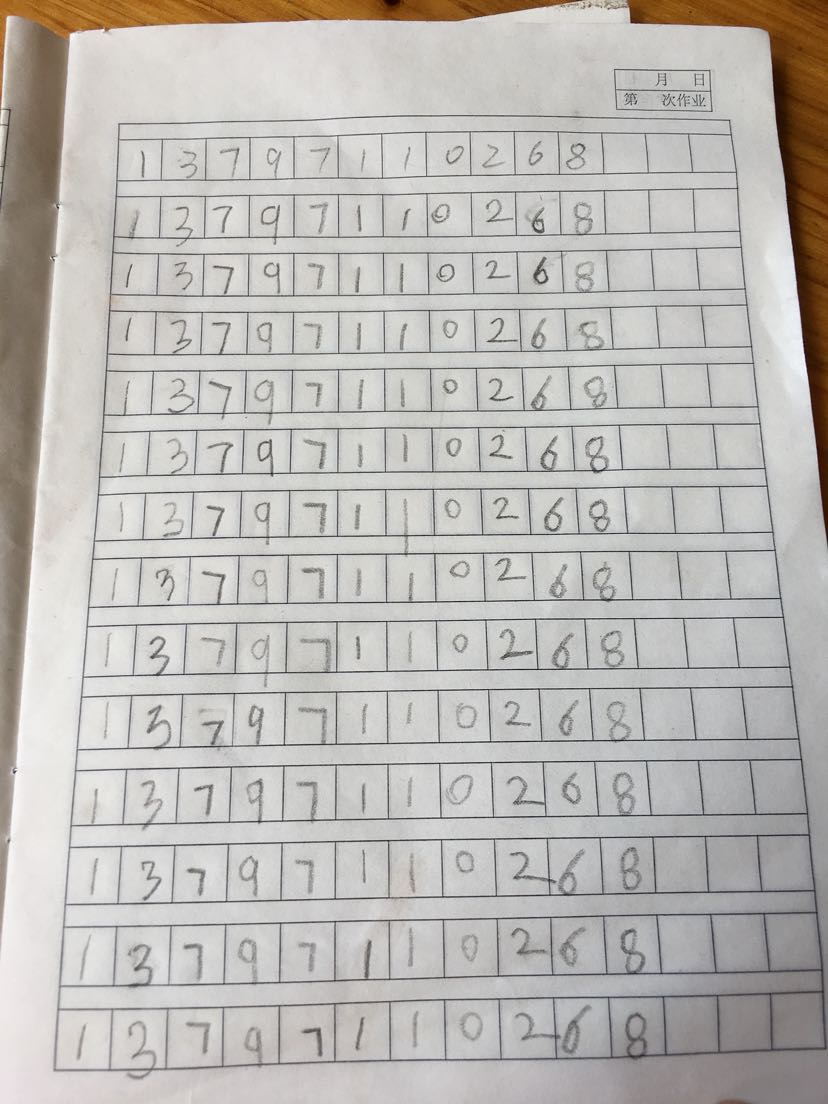 月 日
第 次作业
1 3 7 9 7 1 1 0 2 6 8
1 3 7 9 7 1 1 0 2 6 8
1 3 7 9 7 1 1 0 2 6 8
1 3 7 9 7 1 1 0 2 6 8
1 3 7 9 7 1 1 0 2 6 8
1 3 7 9 7 1 1 0 2 6 8
1 3 7 9 7 1 1 0 2 6 8
1 3 7 9 7 1 1 0 2 6 8
1 3 7 9 7 1 1 0 2 6 8
1 3 7 9 7 1 1 0 2 6 8
1 3 7 9 7 1 1 0 2 6 8
1 3 7 9 7 1 1 0 2 6 8
1 3 7 9 7 1 1 0 2 6 8
1 3 7 9 7 1 1 0 2 6 8